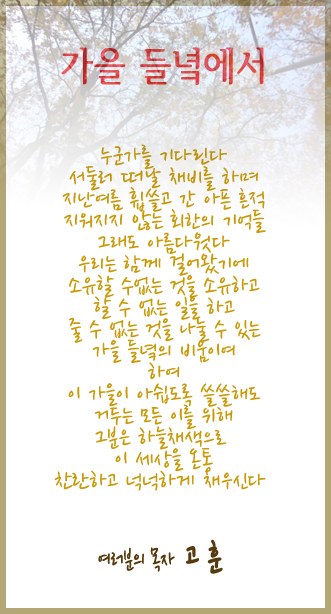 가을 들녘에서
누군가를 기다린다
서둘러 떠날 채비를 하며
지난여름 휩쓸고 간 아픈 흔적
지워지지 않는 회한의 기억들
그래도 아름다웠다
우리는 함께 걸어왔기에
소유할 수없는 것을 소유하고
할 수 없는 일을 하고
줄 수 없는 것을 나눌 수 있는
가을 들녘의 비움이여
하여
이 가을이 아쉽도록 쓸쓸해도
거두는 모든 이를 위해
그분은 하늘채색으로
이 세상을 온통
찬란하고 넉넉하게 채우신다
여러분의 목자 고 훈